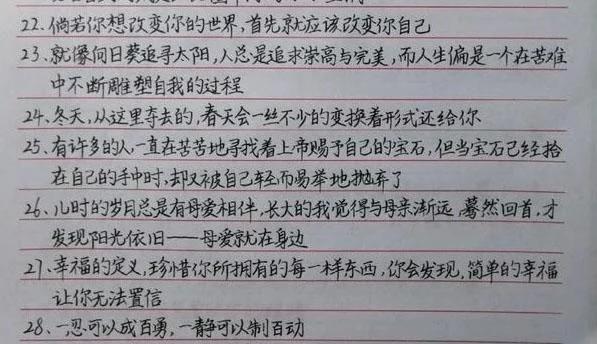 22、倘若你想改变你的世界,首先就应该改变你自己
23、就像向日葵追寻太阳,人总是追求崇高与完美,而人生偏是一个在苦难
中不断雕塑自我的过程
24、冬天,从这里夺去的,春天会一丝不少的变换着形式还给你
25、有许多的人一直在苦苦地寻找着上帝赐予自己的宝石,但当宝石已经拾
在自己的手中时,却又被自己轻而易举地抛弃了
26、儿时的岁月总是有母爱相伴,长大的我觉得与母亲渐远,蓦然回首,才
发现阳光依旧——母爱就在身边
27、幸福的定义,珍惜你所拥有的每一样东西,你会发现,简单的幸福
让你无法置信
28、一忍可以成百勇,一静可以制百动